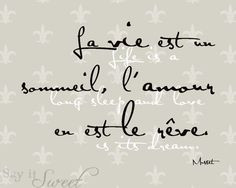 La vie est un
life is a
sommeil, l'amour
long sleep and love
en est le rêve.
is its dream.
Musset
Say it
Sweet